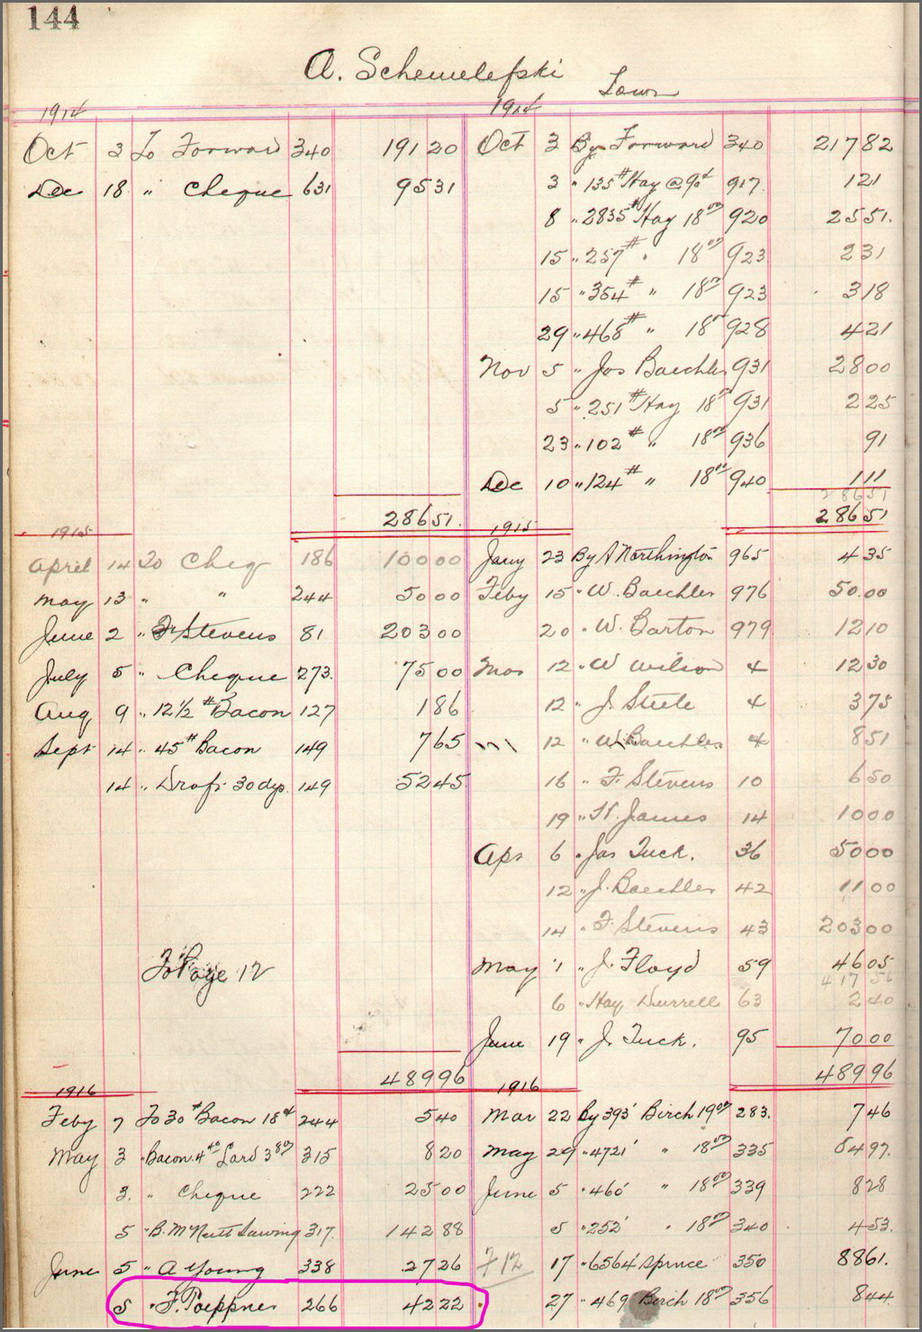 144
A. Schemelefski
Town
1914
Oct 3 To Forward 340 191 20
Dec 18 " Cheque 631 95 31
286 51
1915
April 14 To Cheq 186 100 00
May 13 " " 244 50 00
June 2 " F Stevens 81 203 00
July 5 " Cheque 273 75 00
Aug 9 " 12 1/2 # Bacon 127 1 86
Sept 14 " 45 # Bacon 149 7 65
14 " Draft 30 dys 149 52 45
To Page 12
489 96
1916
Feby 7 To 30 # Bacon 18¢ 244 5 40
May 3 " Bacon 4 40 Lard 3 80 315 8 20
3 " Cheque 222 25 00
5 " B. McNeill Sawing 317 142 88
June 5 " A Young 338 27 26
5 " F. Poeppner 266 42 22
1914
Oct 3 By Forward 340 217 82
3 " 135 # Hay @ 90¢ 917 1 21
8 " 2835 # Hay 18 00 920 25 51
15 " 257 # " 18 00 923 2 31
15 " 354 # " 18 00 923 3 18
29 " 468 # " 18 00 928 4 21
Nov 5 " Jos Baechler 931 28 00
5 " 251 # Hay 18 00 931 2 25
23 " 102 # " 18 00 936 91
Dec 10 " 124 # " 18 00 940 1 11
286 51
286 51
1915
Jany 23 By A Northington 965 4 35
Feby 15 " W. Baechler 976 50.00
20 " W. Barton 979 12 10
Mar 12 " W Wilson 4 12 30
12 " J. Steele 4 3 75
12 " W Baechler 4 8 51
16 " F. Stevens 10 6 50
19 " H. James 14 10 00
Apr 6 " Jas Tuck. 36 50 00
12 " J. Baechler 42 11 00
14 " F. Stevens 43 203 00
May 1 " J. Floyd 59 46 05
417 56
6 " Hay Durrell 63 2 40
June 19 " J. Tuck. 95 70 00
489 96
1916
Mar 22 By 393' Birch 19 00 283 7 46
May 29 " 4721' " 18 00 335 84 97
June 5 " 460' " 18 00 339 8 28
5 " 252' " 18 00 340 4 53
F 12 17 " 6564' Spruce 350 88 61
27 " 469 Birch 18 00 356 8 44